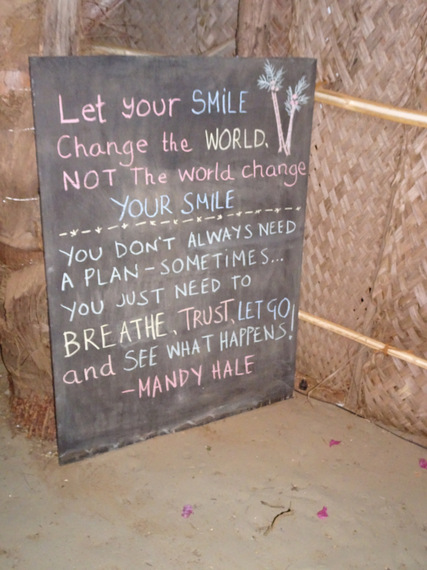 Let your SMiLE
Change the WORLD,
NOT The world change
YOUR SMILE
YOU DON'T ALWAYS NEED
A PLAN - SOMETIMES...
YOU JUST NEED TO
BREATHE, TRUST, LET GO
and SEE WHAT HAPPENS!
-MANDY HALE